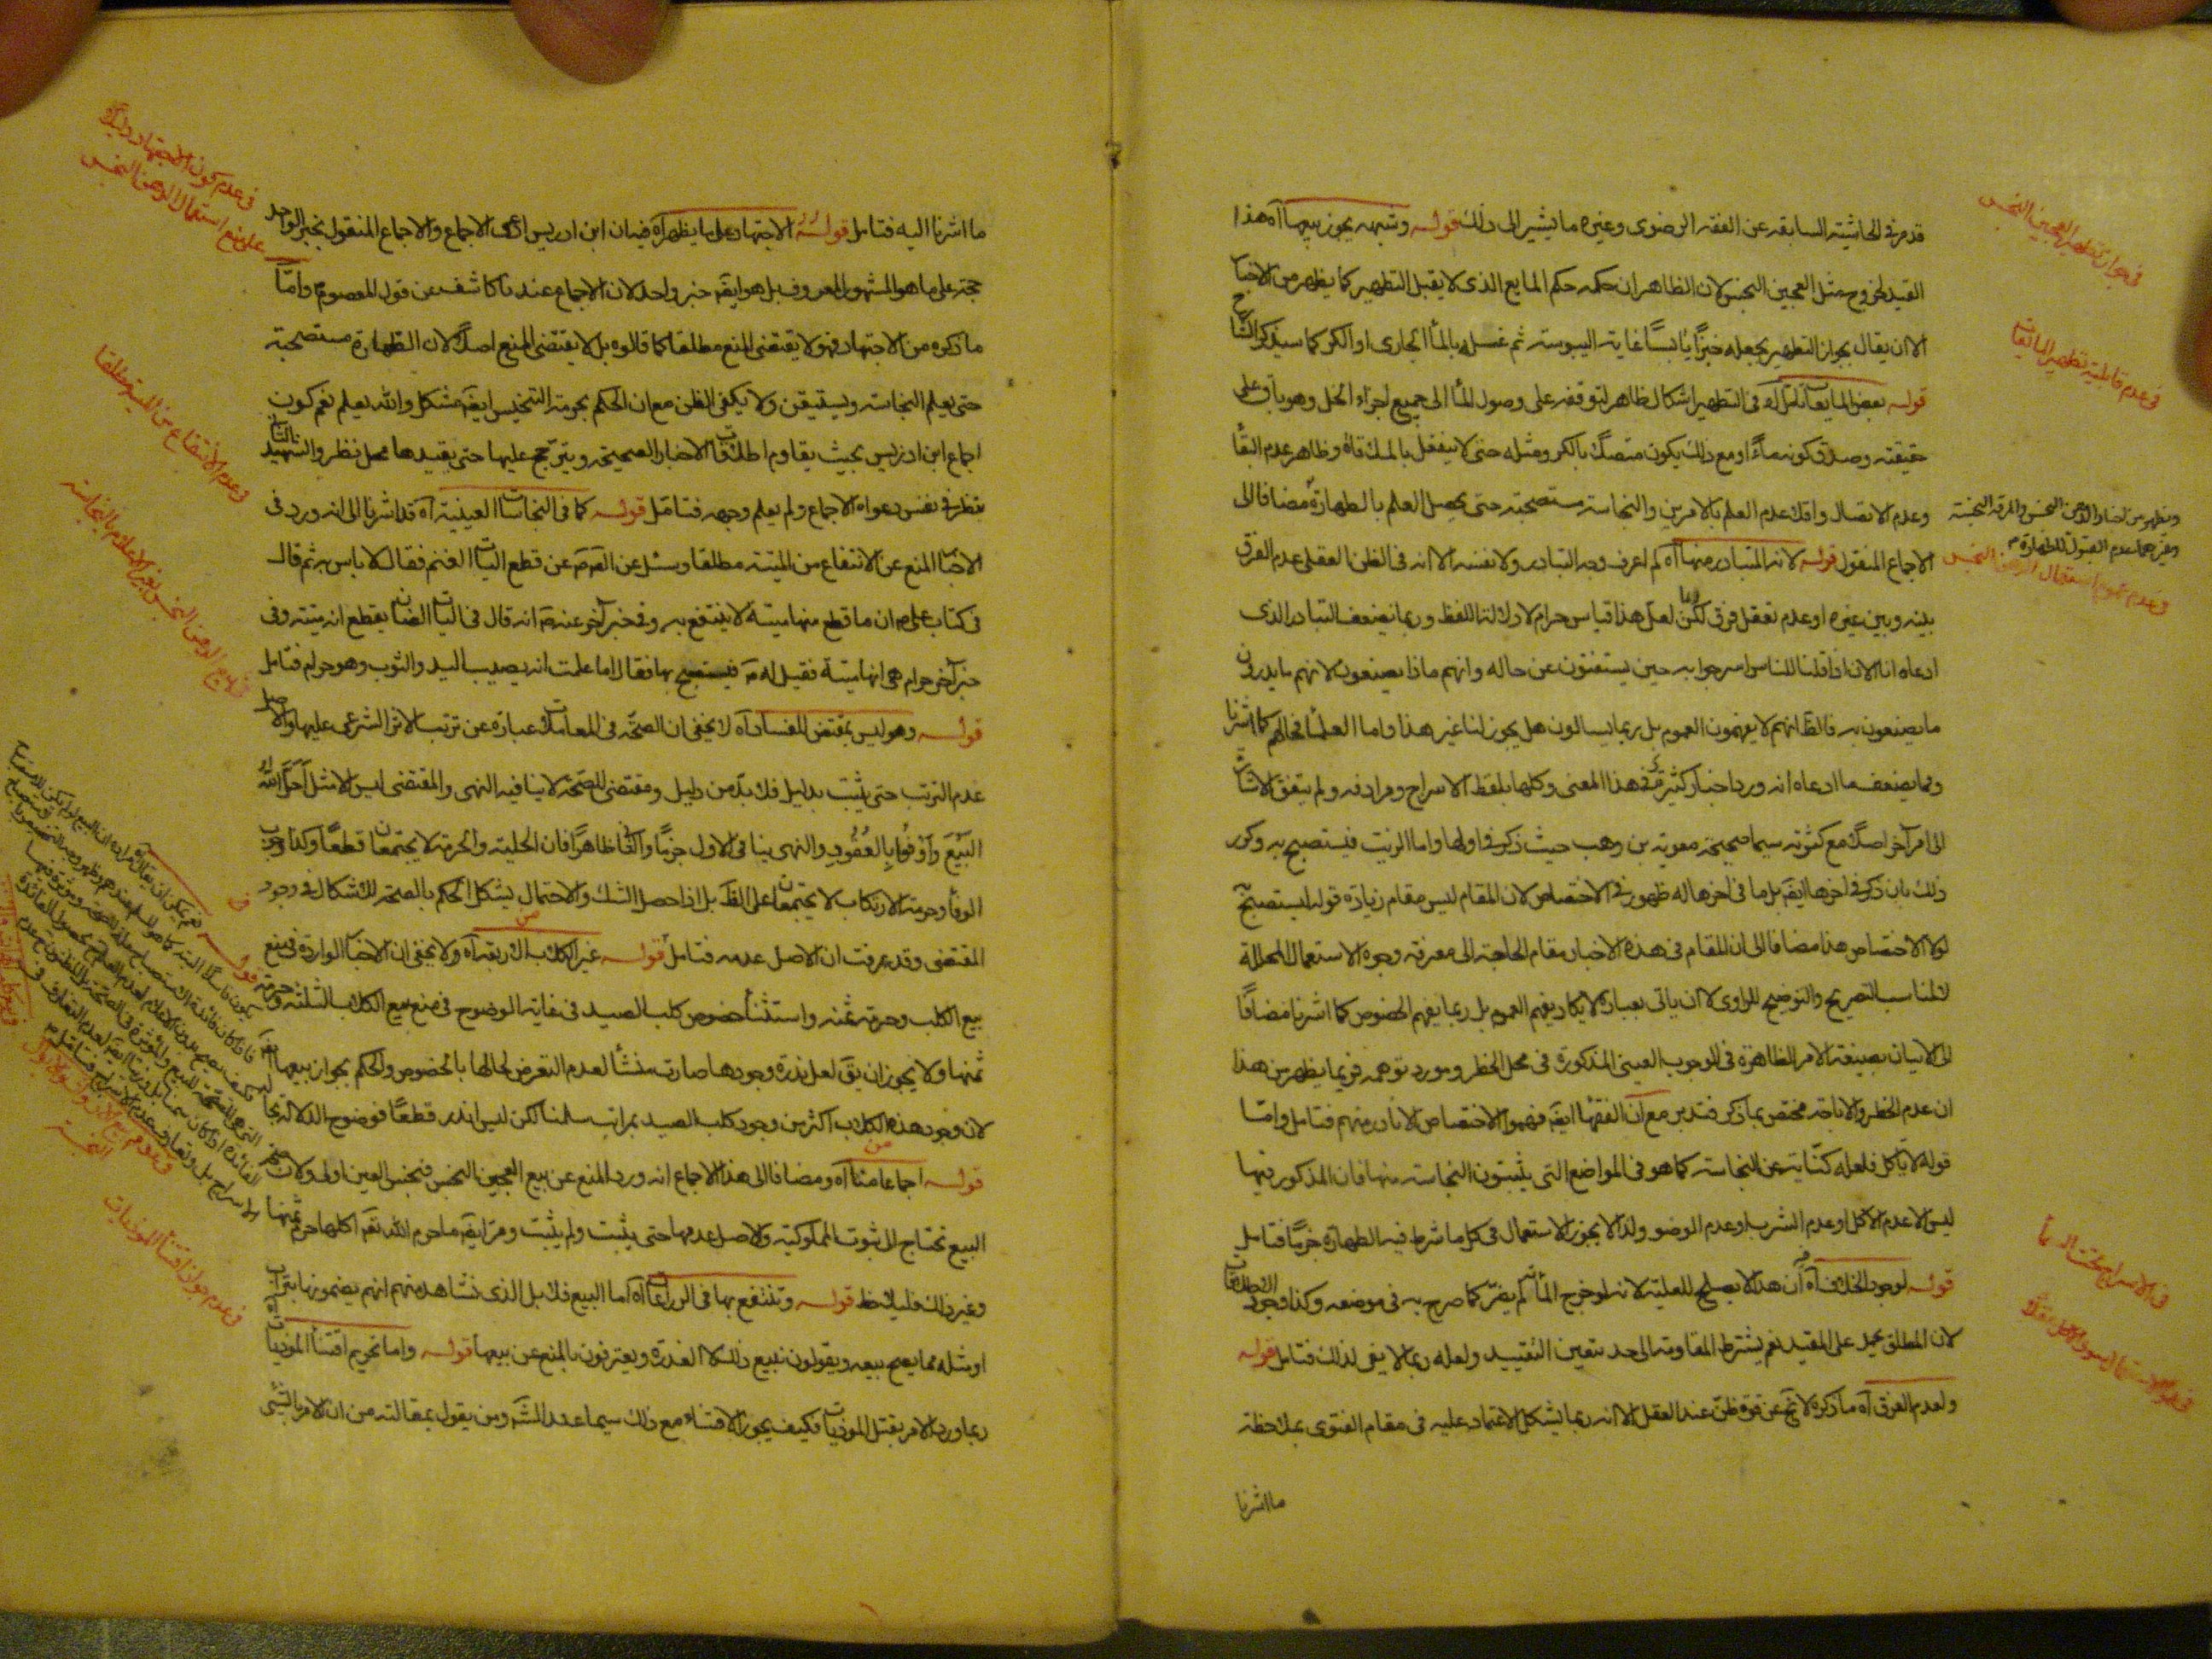 قدم في الحاشية السابقة عن الفقه الرضوى وغيره ما يشير الى ذلك قوله وشبهه يجوز بيعها آه هذا
القيد لخروج مثل العجين النجس لان الظاهر ان حكمه حكم المايع الذى لا يقبل التطهير كما يظهر من الاخبا
الا ان يقال بجواز التطهير بجعله خبزًا يابسًا غاية اليبوسة ثم غسله بالمأ الجارى او الكر كما سيذكر الشا
قوله بعض المايعات لعل آه في التطهير اشكال ظاهر لتوقفه على وصول المأ الى جميع اجزاء الخل وهو باق على
حقيقته وصدق كونه مأً او مع ذلك يكون متصلا بالكر ومثله حتى لا ينفعل بالملاقاة وظاهر عدم البقأ
وعدم الاتصال واقلا عدم العلم بالامرين والنجاسة مستصحبة حتى يحصل العلم بالطهارة مضافا الى
الاجماع المنقول قوله لانه المتبادر منها آه لم اعرف وجه التبادر ولا نفسه الا انه في الظن العقلى عدم الفرق
بينه وبين غيره او عدم تعقل فرق لكن لعل هذا قياس حرام لا دلالة اللفظ وربما يضعف التبادر الذى
ادعاه انا الان اذا قلنا للناس اسرجوا به حين يستفتون عن حاله وانهم ماذا يصنعون لانهم ما يدرون
ما يصنعون به فالظ انهم لا يفهمون العموم بل ربما يسالون هل يجوز لنا غير هذا واما العلمأ فحالهم كما اشرنا
ومما يضعف ما ادعاه انه ورد اخبار كثيرة في هذا المعنى وكلها بلفظ الاسراج ومرادفه ولم يتفق الاشا
الى امر آخر اصلا مع كثرته سيما صحيحة معوية بن وهب حيث ذكر في اولها واما الزيت فيستصبح به وكرر
ذلك بان ذكر في اخرها ايضَ بل ما في اخرها له ظهور في الاختصاص لان المقام ليس مقام زيادة قوله ليستصبح
لولا الاختصاص هذا مضافا الى ان المقام في هذه الاخبار مقام الحاجة الى معرفة وجوه الاستعمال المحللة
فالمناسب التصريح والتوضيح للراوى لا ان ياتى بعبارة لا يكاد يفهم العموم بل ربما يفهم الخصوص كما اشرنا مضافًا
الى الاتيان بصيغة الامر الظاهرة في الوجوب العينى المذكورة في محل الحظر ومورد توهمه فربما يظهر من هذا
ان عدم الحظر والاباحة مختص بما ذكر فتدبر مع ان الفقها ايضَ فهموا الاختصاص الا نادر منهم فتامل وامّا
قوله لا ياكل فلعله كناية عن النجاسة كما هو في المواضع التى يثبتون النجاسة منها فان المذكور فيها
ليس الا عدم الاكل او عدم الشرب او عدم الوضو ولذا لا يجوز الاستعمال في كل ما شرط فيه الطهارة جزمًا فتامل
قوله لوجود الخلاف آه ان هذا لا يصلح للعلية لانه لو خرج المأ لم يضر كما صرح به في موضعه وكذا وجود
لان المطلق يحمل على المقيد نعم يشترط المقاومة الى حد يتعين التقييد ولعله ربما لا يفى لذلك فتامل قوله
ولعدم الفرق آه ما ذكره لا يخ عن قوة ظن عند العقل الا انه ربما يشكل الاعتماد عليه في مقام الفتوى بملاحظة
ما اشرنا
في جواز تطهير العجين النجس
في عدم قابلية تطهير المايعات
ويظهر من اخبار الدهن النجس والمرقة النجسة
وغيرهما عدم القبول للطهارة
ما اشرنا اليه فتامل قوله الاجتهاد على ما يظهر آه فيه ان ابن ادريس ادعى الاجماع والاجماع المنقول بخبر الواحد
حجة على ما هو المشهور المعروف بل هو ايضَ خبر واحد لان الاجماع عندنا كاشف عن قول المعصوم وامّا
ما ذكره من الاجتهاد فهو لا يقتضى المنع مطلقا كما قالوه بل لا يقتضى المنع اصلا لان الطهارة مستصحبة
حتى يعلم النجاسة ويستيقن ولا يكفى الظن مع ان الحكم بحرمة التنجيس ايضَ مشكل والله يعلم نعم كون
اجماع ابن ادريس بحيث يقاوم اطلاقا الاخبار الصحيحة ويترجح عليها حتى يقيدها محل نظر والشهيد
ينظر في نفس دعواه الاجماع ولم يعلم وجهه فتامل قوله كما في النجاسا العينية آه قد اشرنا الى انه ورد في
الاخبا المنع عن الانتفاع من الميتة مطلقا وسئل عن الصَ عن قطع اليا الغنم فقال لا باس به ثم قال
في كتاب على ان ما قطع منها ميتة لا ينتفع به وفي خبر آخر عنه انه قال في اليا الضان يقطع انه ميتة وفى
خبر آخر حرام هى انها ميتة فقيل له فيستصبح بها فقال اما علمت انه يصيب اليد والثوب وهو حرام فتامل
قوله وهو ليس بمقتض للفساد آه لا يخفى ان الصحّة في المعاملا عبارة عن ترتب الاثر الشرعى عليها والاصل
عدم الترتب حتى يثبت بدليل فلا بدّ من دليل ومقتضى للصّحة لا ينافيه النهى والمقتضى ليس الا مثل اَحَلَّ اللّهُ
البَيْعَ وَاَوْفُوا بِالعُقُودِ والنهى ينافى الاول جزمًا والثانى ظاهرًا فان الحلية والحرمة لا يجتمعان قطعًا وكذا وجوب
الوفأ وحرمة الارتكاب لا يجتمعان على الظ بل اذا حصل الشك والاحتمال يشكل الحكم بالصحة للاشكال في وجود
المقتضى وقد عرفت ان الاصل عدمه فتامل قوله غير الكلاب الاربعة آه ولا يخفى ان الاخبا الواردة في منع
بيع الكلب وحرمة ثمنه واستثنأ خصوص كلب الصيد في غاية الوضوح في منع بيع الكلاب الثلثة وحرمة
ثمنها ولا يجوز ان يقَ لعل ندرة وجودها صارت منشأ لعدم التعرض لحالها بالخصوص والحكم بجواز بيعها
لان وجود هذه الكلاب اكثر من وجود كلب الصيد بمراتب سلمنا لكن ليس اندر قطعًا فوضوح الدلالة بحاله
قوله اجماعا منّا آه ومضافا الى هذا الاجماع انه ورد المنع عن بيع العجين النجس فنجس العين اولى ولان صحة
البيع تحتاج الى ثبوت المملوكية والاصل عدمها حتى يثبت ولم يثبت ومرّ ايضَ ما حرم الله تعَ اكلها حرم ثمنها
وغير ذلك فليلاحظ قوله وتنتفع بها في الزراعا آه اما البيع فلا بل الذى نشاهد منهم انهم يضمونها بتراب
او مثله مما يصح بيعه ويقولون نبيع ذلك لا العذرة ويعترفون بالمنع عن بيعها قوله واما تحريم اقتنأ الموذيا آه
ربما ورد الامر بقتل الموذيا فكيف يجوز الاقتناء مع ذلك سيما عند الشَه ومن يقول بمقالته من ان الامر بالشئ
في عدم كون الاجتهاد دليلا
على منع استعمال الدهن النجس
وعدم الانتفاع من الميتة مطلقا
في بيع الدهن النجس بغير الاعلام بالنجاسة
في عدم جواز اقتنأ الموذيات